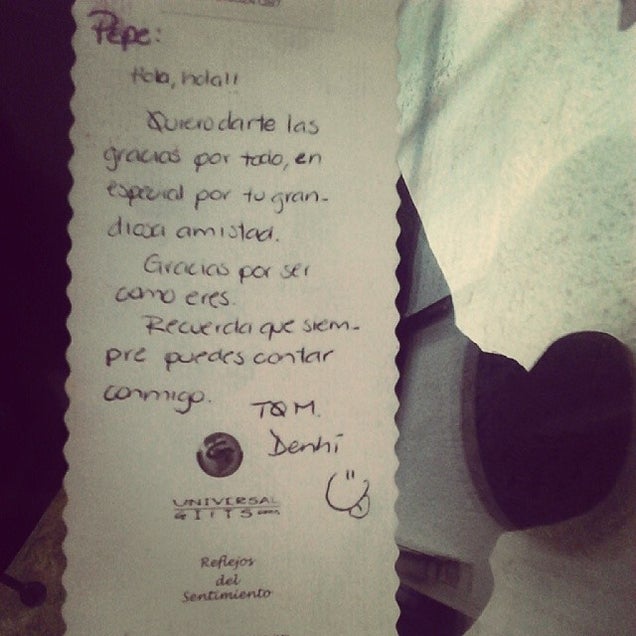 Pepe:
Hola, hola!!
Quiero darte las
gracias por todo, en
especial por tu gran-
diosa amistad.
Gracias por ser
como eres.
Recuerda que siem-
pre puedes contar
conmigo.
TQM.
Denhi
UNIVERSAL
GIFTS.com
Reflejos
del
Sentimiento